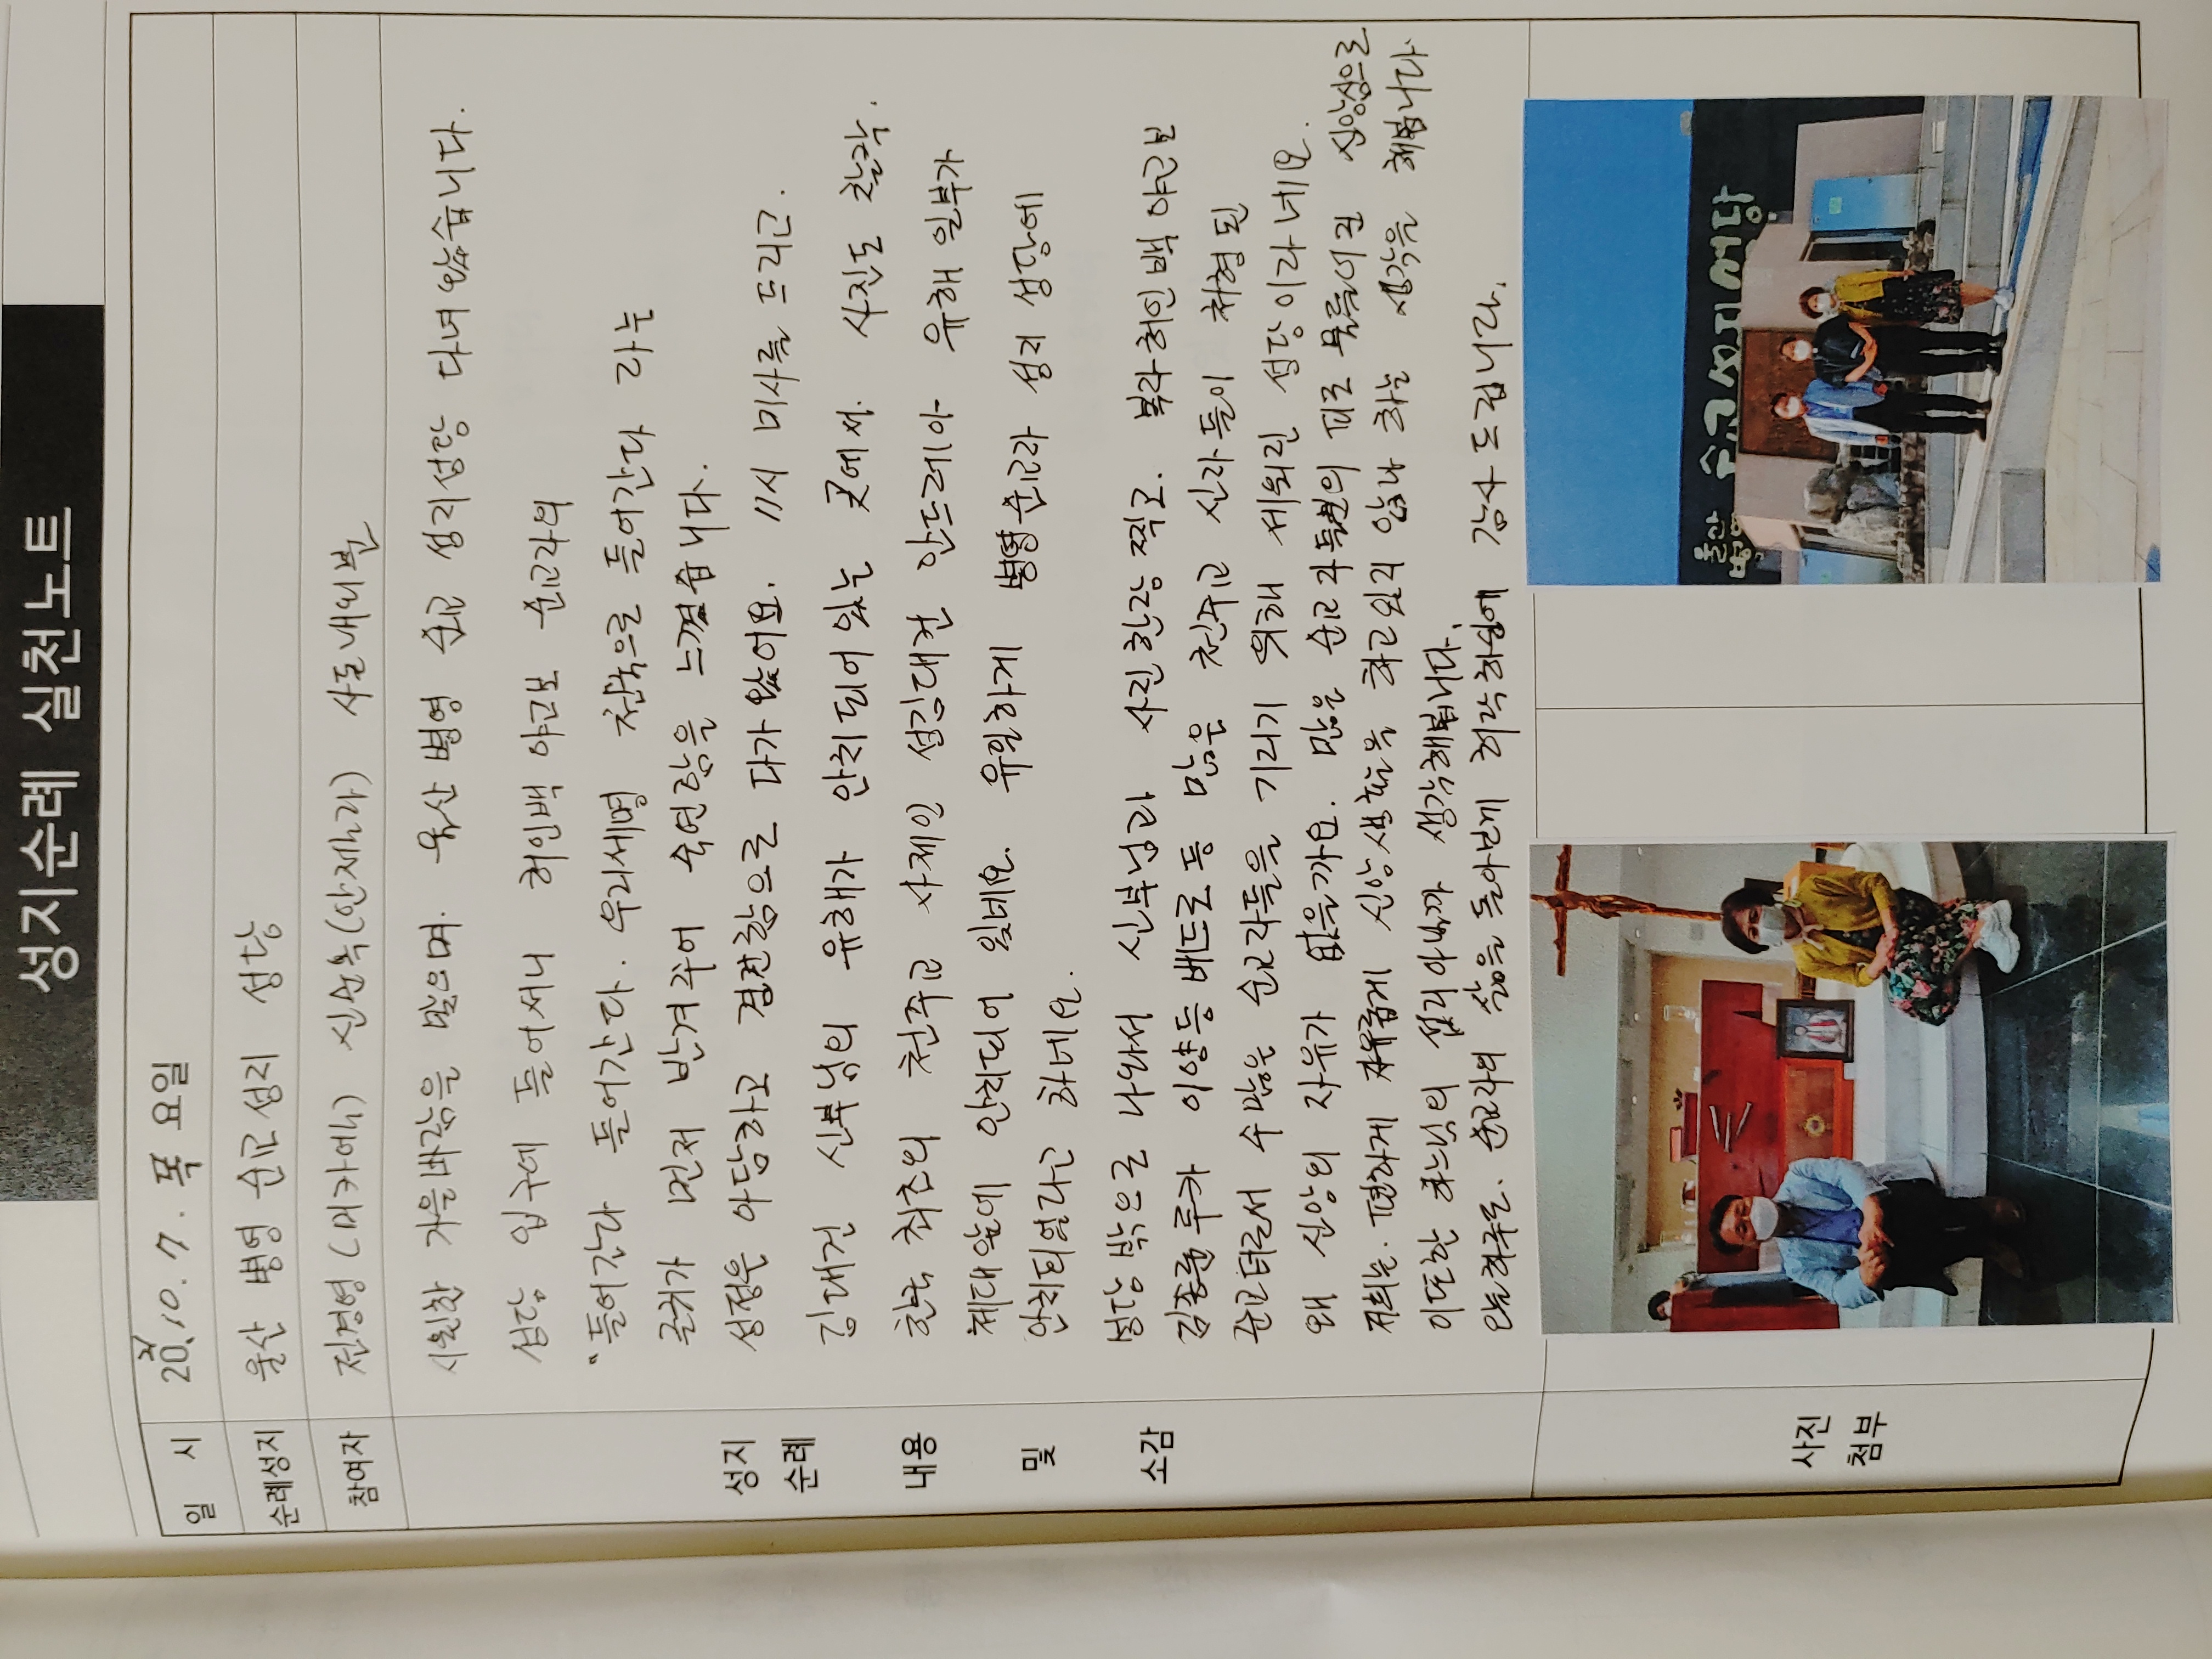 성지순례 실천노트
일 시 2021. 10. 7. 목 요일
순례성지 울산 병영 순교성지 성당
참여자 전경영 (메카에나) 신순옥 (안젤라) 사도내외분
시원한 가을바람을 맞으며. 울산 병영 순교 성지성당 다녀 왔습니다.
성당 입구에 들어서니 허인백 야고보 순교자의
"들어간다 들어간다. 우리세명 천국으로 들어간다 라는
글귀가 먼저 반겨주어 숙연함을 느꼈습니다.
성전은 아담하고 경건함으로 다가 왔어요. 11시 미사를 드리고.
김대건 신부님의 유해가 안치되어 있는 곳에서. 사진도 찰칵.
한국 최초의 천주교 사제인 성김대건 안드레아 유해 일부가
제대앞에 안치되어 있네요. 유일하게 병영 순교자 성지 성당에
안치되였다고 하네요.
성당 밖으로 나와서 신부님과 사진한장 찍고. 복자 허인백 야고보
김종륜 루카 이양등 베드로 등 많은 천주교 신자들이 처형된
순교터로서 수많은 순교자들을 기리기 위해 세워진 성당이라네요.
왜 신앙의 자유가 없을까요. 많은 순교자들의 피로 물들이고 신앙심으로
저희는. 편하게 자유롭게 신앙생활을 하고있지 않나 하는 생각을 해봅니다.
이또한 하느님의 섭리아닐까 생각해봅니다.
오늘하루도. 순교자의 삶을 돌아보게 허락하심에 감사 드립니다.
성지
순례
내용
및
소감
사진
첨부
울산
병영 순교성지성당